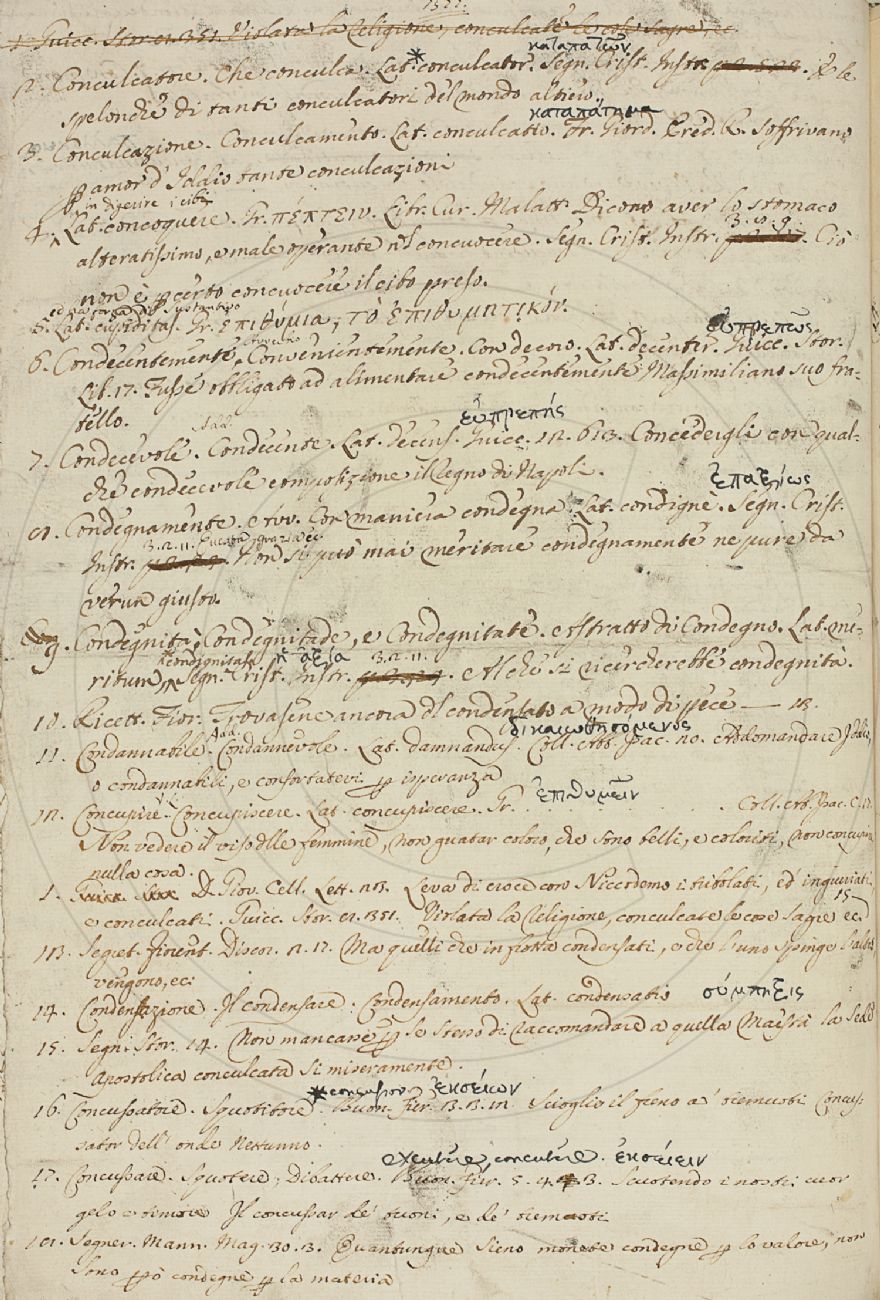 1. Guicc. Stor. 351. Violata la Religione, conculcate le cose sagre, ec.
καταπατῶν
2. Conculcatore. Che conculca. Lat. *conculcator. Segn. Crist. Instr. A le
spelonche di tanti conculcatori del mondo altiero.
καταπάτημα
3. Conculcazione. Conculcamento. Lat. conculcatio. Fr. Giord. Pred. R. Soffrivano
amor d'Iddio tante conculcazioni
in digerire i cibi
4. Lat. concoquere. Gr. πέπτειν. Libr. Cur. Malatt. Dicono aver lo stomaco
3. 10. 9.
alteratissimo, e male operante nel concuocere. Segn. Crist. Instr. Ciò
non è certo concuocere il cibo preso.
5. Lat. cupiditas. Gr. ἐπιθυμία, τὸ ἐπιθυμητικόν.
εὐπρεπῶς
6. Condecentemente. Convenientemente. Con decoro. Lat. decenter. Guicc. Stor.
Lib. 17. Fusse obbligato ad alimentare condecentemente Massimiliano suo fra-
tello.
Add. εὐπρεπής
7. Condecevole. Condecente. Lat. decens. Guicc. 12. 613. Concedergli con qual-
che condecevole composizione il Regno di Napoli.
ἐπαξίως
8. Condegnamente. Avv. Con maniera condegna. Lat. condigne. Segn. Crist.
3. 2. 11.
Instr. Non si può mai meritare condegnamente ne pure da
verun giusto.
9. Condegnità, Condegnitade, e Condegnitate. Astratto di Condegno. Lat. me-
condignitas ἡ ἀξία 3. 2. 11.
ritum, Segn. Crist. Instr. Alche si ricercherebbe condegnità.
10. Ricett. Fior. Trovasene ancora del condensato a modo di pece — 18.
Add. δικαιωθησόμενος
11. Condannabile. Condannevole. Lat. damnandus. Coll. Ab. Isac. 20. Addomandare Iddio,
o condannabili, e confortatevi speranza
ἐπιθυμεῖν
12. Concupire. Concupiscere. Lat. concupiscere. Gr. Coll. Ab. Isac. C. 17.
Non vedere il viso delle femmine, non guatar coloro, che sono belli, e coloriti, non concupire
nulla cosa.
1. D. Giov. Cell. Lett. 23. Leva di croce con Niccodemo i tribolati, ed ingiuriati,
e conculcati. Guicc. Stor. 351. Violata la Religione, conculcate le cose sagre ec.
13. Segret. fiorent. Discor. 2. 17. Ma quelli che in frotta condensati, e che l'uno spinge l'altro
vengono, ec.
σύμπηξις
14. Condensazione. Il condensare. Condensamento. Lat. condensatio
15. Segni. Stor. 14. Non mancare se stesso di raccomandare a quella Maestà la Sede
Apostolica conculcata sì miseramente.
*concussor ἐκσείων
16. Concussatore. Squotitore. Buon. Fier. 3. 3. 12. Scioglio il freno a' tremuoti Concus-
sator dell' onde Nettunno.
excutere, concutere. ἐκσείειν
17. Concussare. Squotere, Dibattere. Buon. Fier. 5. 4. 3. Scotendo i nostri cuor
gelo e timore Il concussar de' tuoni, e de' tremuoti
18. Segner. Mann. Mag. 30. 3. Quantunque sieno monete condegne lo valore, non
sono però condegne la materia